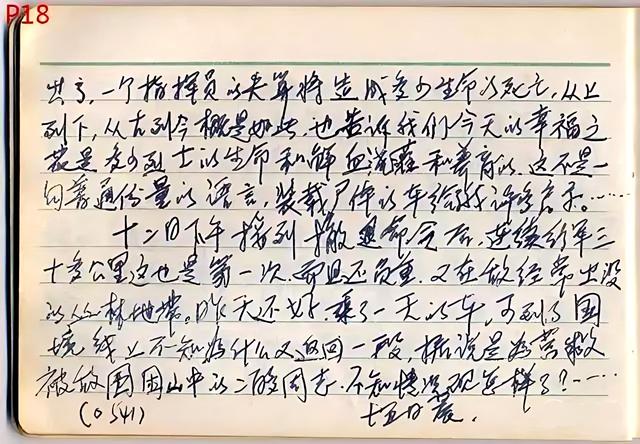 P18
，一个指挥员的失算将造成多少生命的死亡，从上
到下，从古到今概是如此，也告诉我们今天的幸福之
花是多少烈士的生命和鲜血浇灌和养育的。这不是一
句普通份量的语言，装载尸体的车给我许多启示。……
十二日下午接到撤退命令后，连续行军三
十多公里这也是第一次，而且还负重，又在敌经常出没
的丛林地带。昨天还好乘了一天的车，可到了国
境线上不知为什么又返回一段，据说是为营救
被敌围困山中的二同志。不知情况现怎样了？……
(0541) 十五日晨.